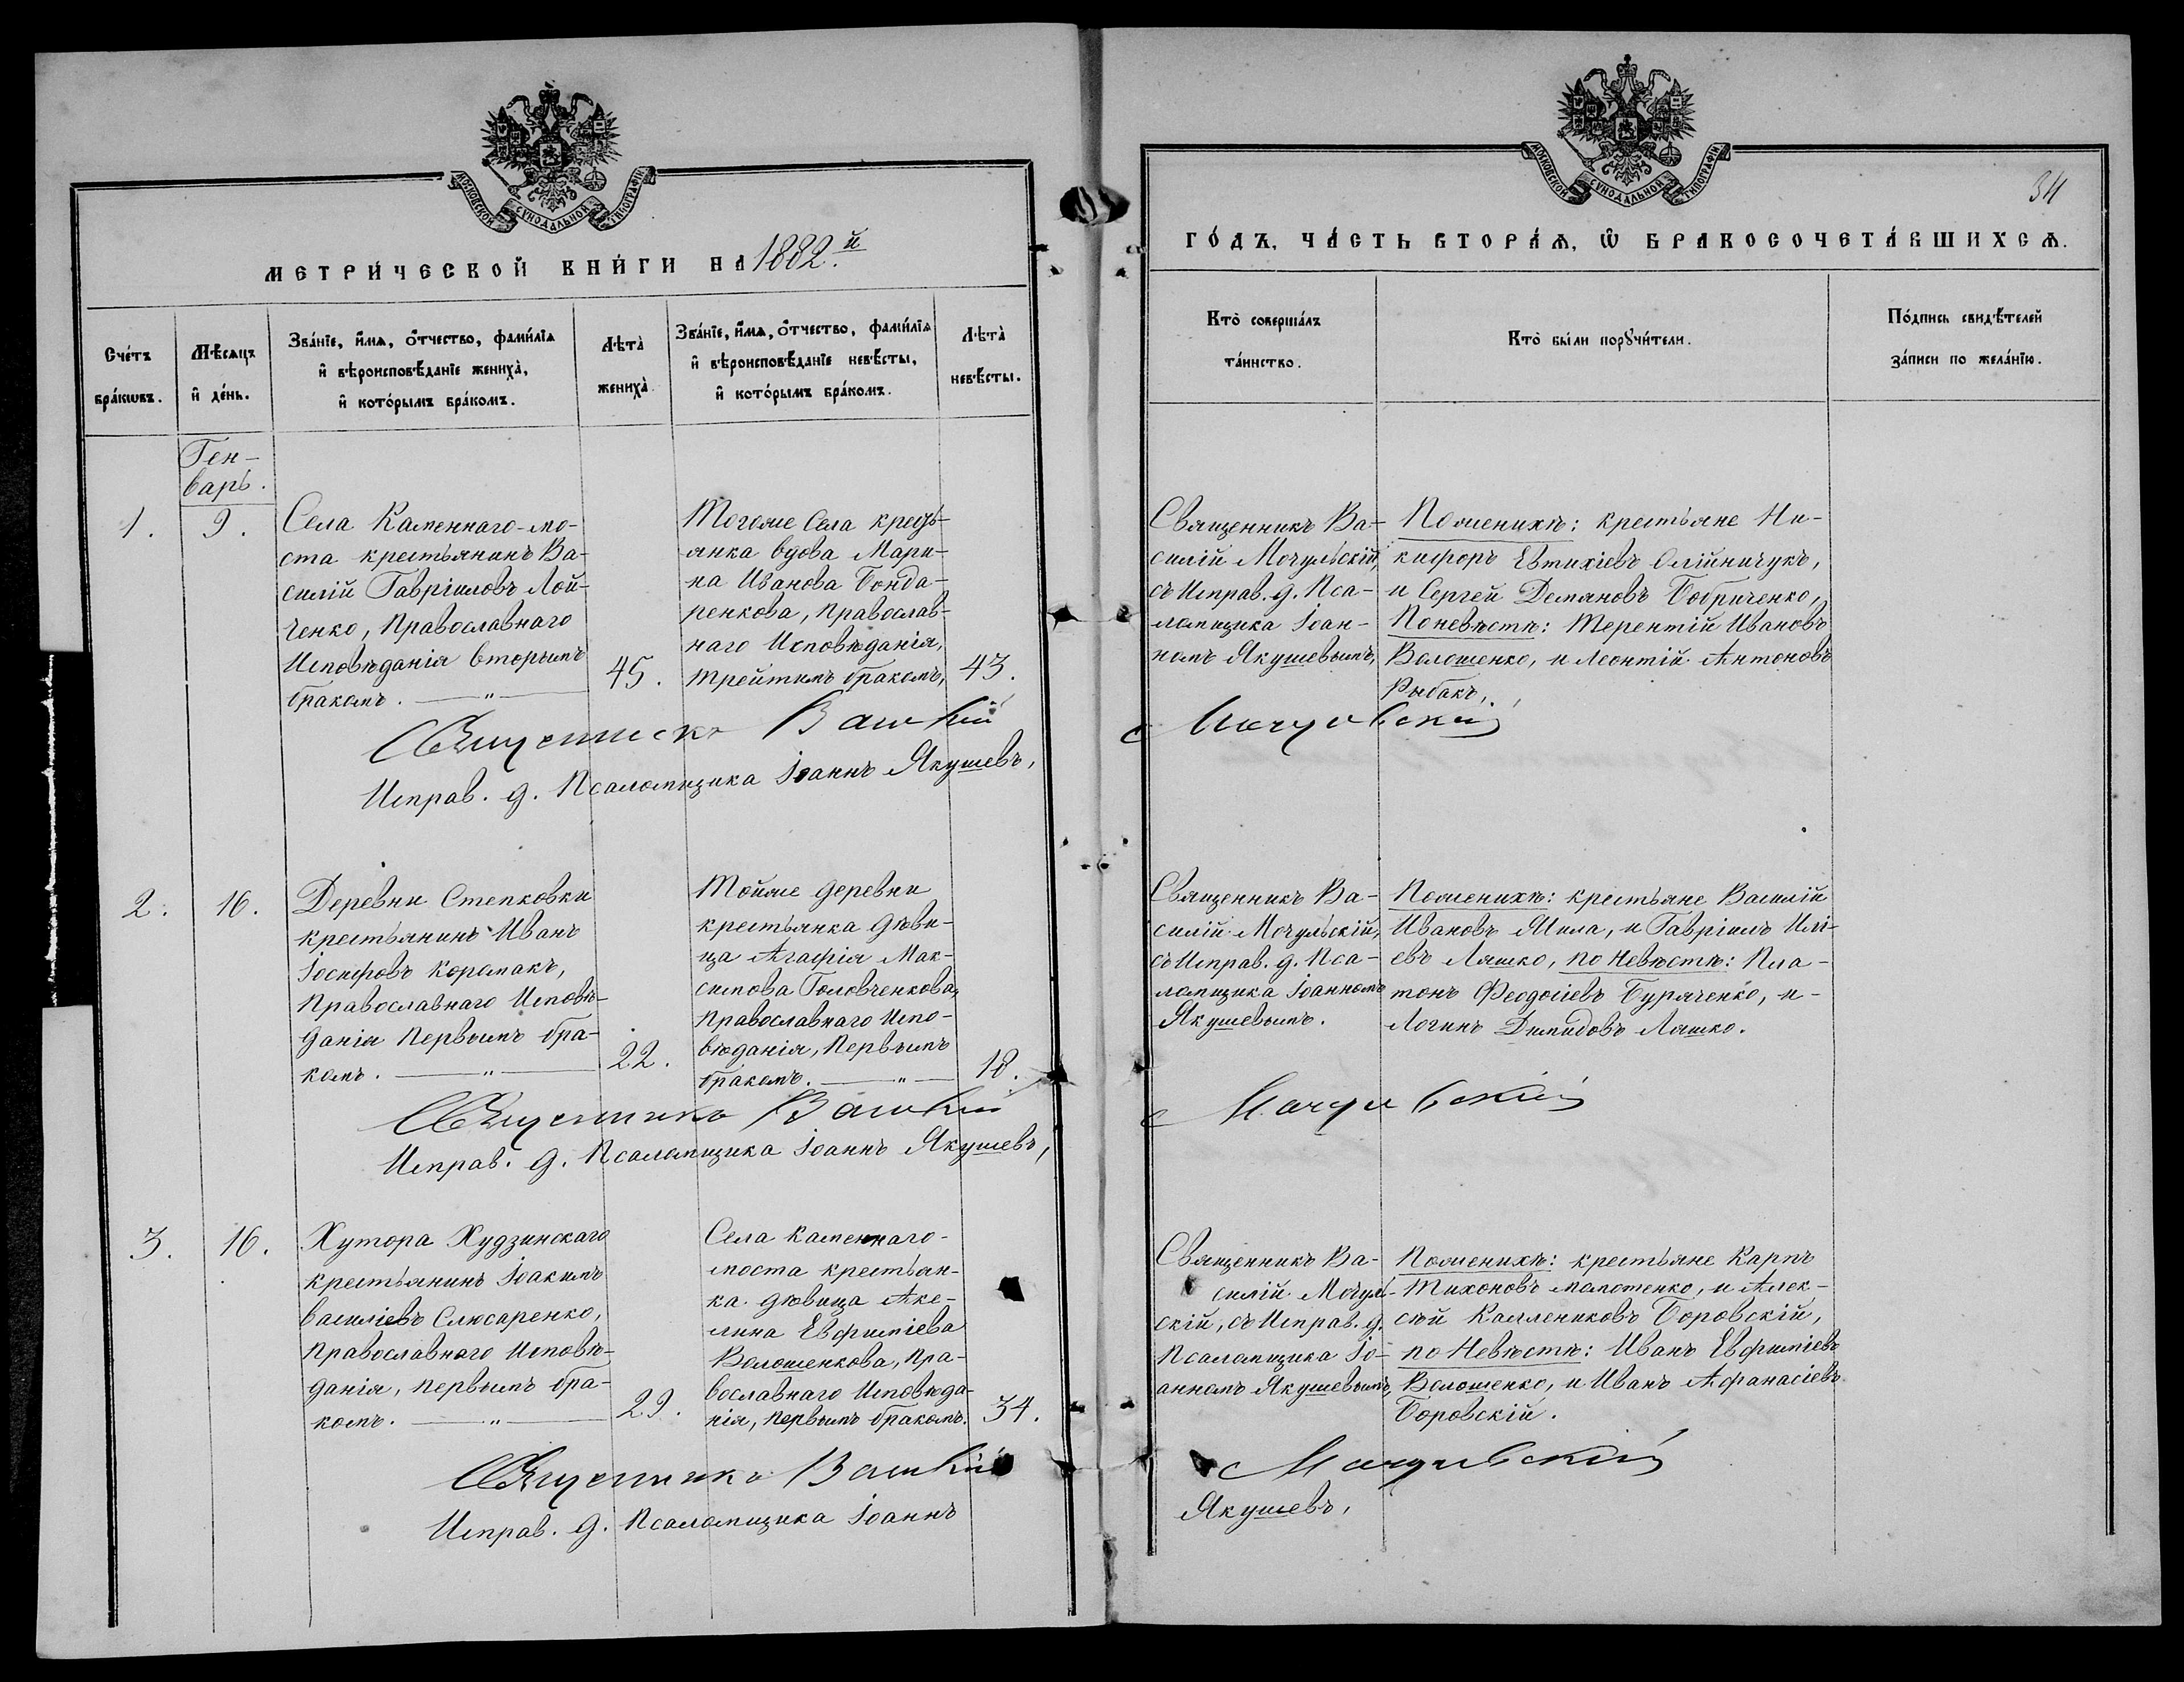 МОСКОВСКОЙ СѴНОДАЛЬНОЙ ТИПОГРАФІИ
МЕТРИ́ЧЕСКОЙ КНИ́ГИ НА 1882.й
Сче́тъ бра́кѡвъ.
Мѣ́сяцъ и҆ де́нь.
Зва́нїе, и҆́мѧ, ѻ҆́тчество, фами́лїѧ
и҆ вѣроисповѣ́данїе жениха̀,
и҆ кото́рымъ бра́комъ.
Лѣта̀ жениха̀
Зва́нїе, и҆́мѧ, ѻ҆́тчество, фами́лїѧ
и҆ вѣроисповѣ́данїе невѣ́сты,
и҆ кото́рымъ бра́комъ.
Лѣта̀ невѣ́сты.
Ген-
варь.
1.
9.
Села Каменнаго-мо-
ста крестьянинъ Ва-
силій Гавріиловъ Лой-
ченко, Православнаго
Исповѣданія вторымъ
бракомъ. — " —
45.
Тогоже Села кресть-
янка вдова Мари-
на Иванова Бонда-
ренкова, Православ-
наго Исповѣданія,
третимъ бракомъ,
43.
Священникъ Василій
Исправ. д. Псаломщика Іоаннъ Якушевъ,
2.
16.
Деревни Степковки
крестьянинъ Иванъ
Іосифовъ Кормакъ,
Православнаго Исповѣ-
данія Первымъ бра-
комъ. — " —
22.
Тойже деревни
крестьянка дѣви-
ца Агафія Мак-
симова Головченкова,
Православнаго Испо-
вѣданія, Первымъ
бракомъ. — " —
18.
Священникъ Василій
Исправ. д. Псаломщика Іоаннъ Якушевъ,
3.
16.
Хутора Худзинскаго
крестьянинъ Іоакимъ
Василіевъ Слюсаренко,
Православнаго Исповѣ-
данія, Первымъ бра-
комъ. — " —
29.
Села Каменнаго-
моста крестьян-
ка дѣвица Аке-
лина Евфиміева
Волошенкова, Пра-
вославнаго Исповѣда-
нія, первымъ бракомъ.
34.
Священникъ Василій
Исправ. д. Псаломщика Іоаннъ
МОСКОВСКОЙ СѴНОДАЛЬНОЙ ТИПОГРАФІИ
34
ГО́ДЪ, ЧА́СТЬ ВТОРА́Ѧ, Ѡ҆ БРАКОСОЧЕТА́ВШИХСѦ.
Кто̀ соверша́лъ
та́инство.
Кто̀ бы́ли порꙋчи́тели.
По́дпись свидѣ́телей
за́писи по жела́нїю.
Священникъ Ва-
силій Мочульскій,
съ Исправ. д. Пса-
ломщика Іоан-
номъ Якушевымъ,
По женихѣ: крестьяне Ни-
кифоръ Евтихіевъ Олійничукъ,
и Сергей Демяновъ Бобриченко,
По невѣстѣ: Терентій Ивановъ
Волошенко, и Леонтій Антоновъ
Рыбакъ,
Мочульскій
Священникъ Ва-
силій Мочульскій,
съ Исправ. д. Пса-
ломщика Іоанномъ
Якушевымъ.
По женихѣ: крестьяне Василій
Ивановъ Мила, и Гавріилъ Илі-
евъ Ляшко, по Невѣстѣ: Пла-
тонъ Феодосіевъ Буряченко, и-
Логинъ Димидовъ Ляшко.
Мочульскій
Священникъ Ва-
силій Мочуль-
скій, съ Исправ. д.
Псаломщика Іо-
анномъ Якушевымъ,
По женихѣ: крестьяне Карпъ
Тихоновъ Маложенко, и Алек-
сѣй Каллениковъ Боровскій,
по Невѣстѣ: Иванъ Евфиміевъ
Волошенко, и Иванъ Афанасіевъ
Боровскій.
Мочульскій
Якушевъ,